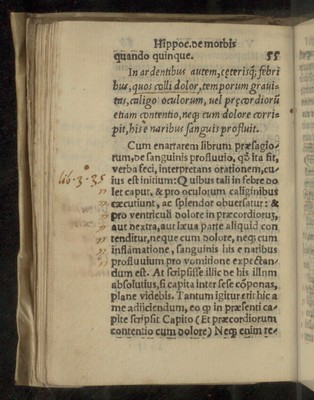 Hippoc. de morbis
quando quinque. 55
In ardentibus autem, cęterisq; febri
bus, quos colli dolor, temporum graui-
tas, caligo oculorum, uel pręcordiorū
etiam contentio, neq; cum dolore corri-
pit, his e naribus sanguis profluit.
Cum enartarem librum præsagio-
rum, de sanguinis profluuio, qđ ita fit,
lib·3·35 verba feci, interpretans orationem, cu-
ius est initium: Quibus tali in febre do
let caput, & pro oculorum caliginibus
excutiunt, ac splendor obuersatur: &
pro ventriculi dolore in præcordijs,
aut dextra, aut læua parte aliquid con
tenditur, neque cum dolore, neq; cum
inflāmatione, sanguinis his e naribus
profluuium pro vomitione expectan-
dum est. At scripsisse illic de his illum
absolutius, si capita inter sese cōponas,
plane videbis. Tantum igitur erit hic a
me adijciendum, eo ꝙ in præsenti ca-
pite scripsit Capito (Et præcordiorum
contentio cum dolore) Neq; enim te-